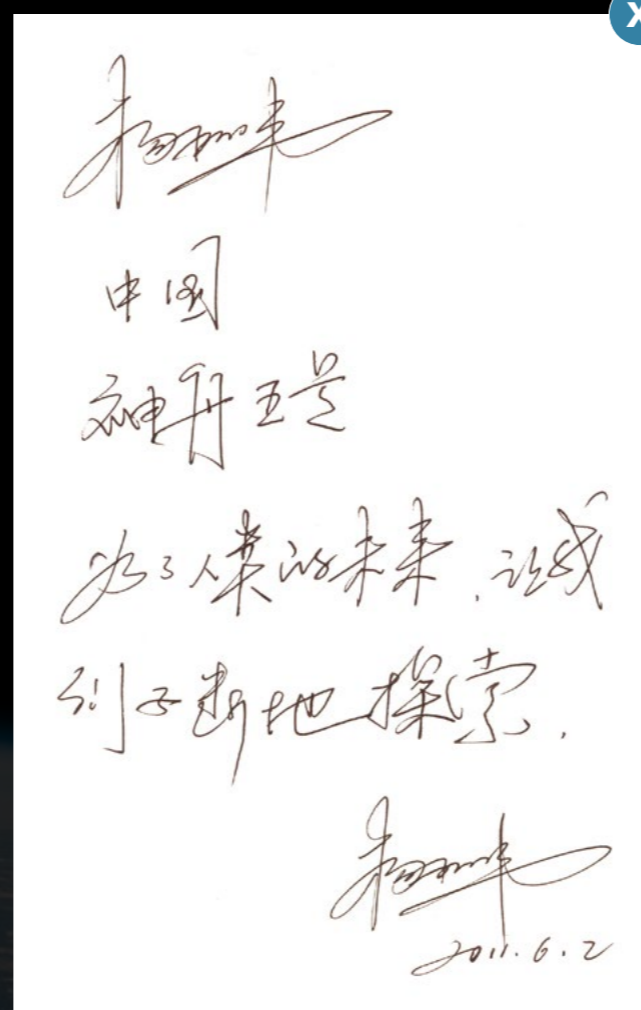 杨利伟
中国
神舟五号
为了人类的未来,让我
们不断地探索.
杨利伟
2011.6.2
X